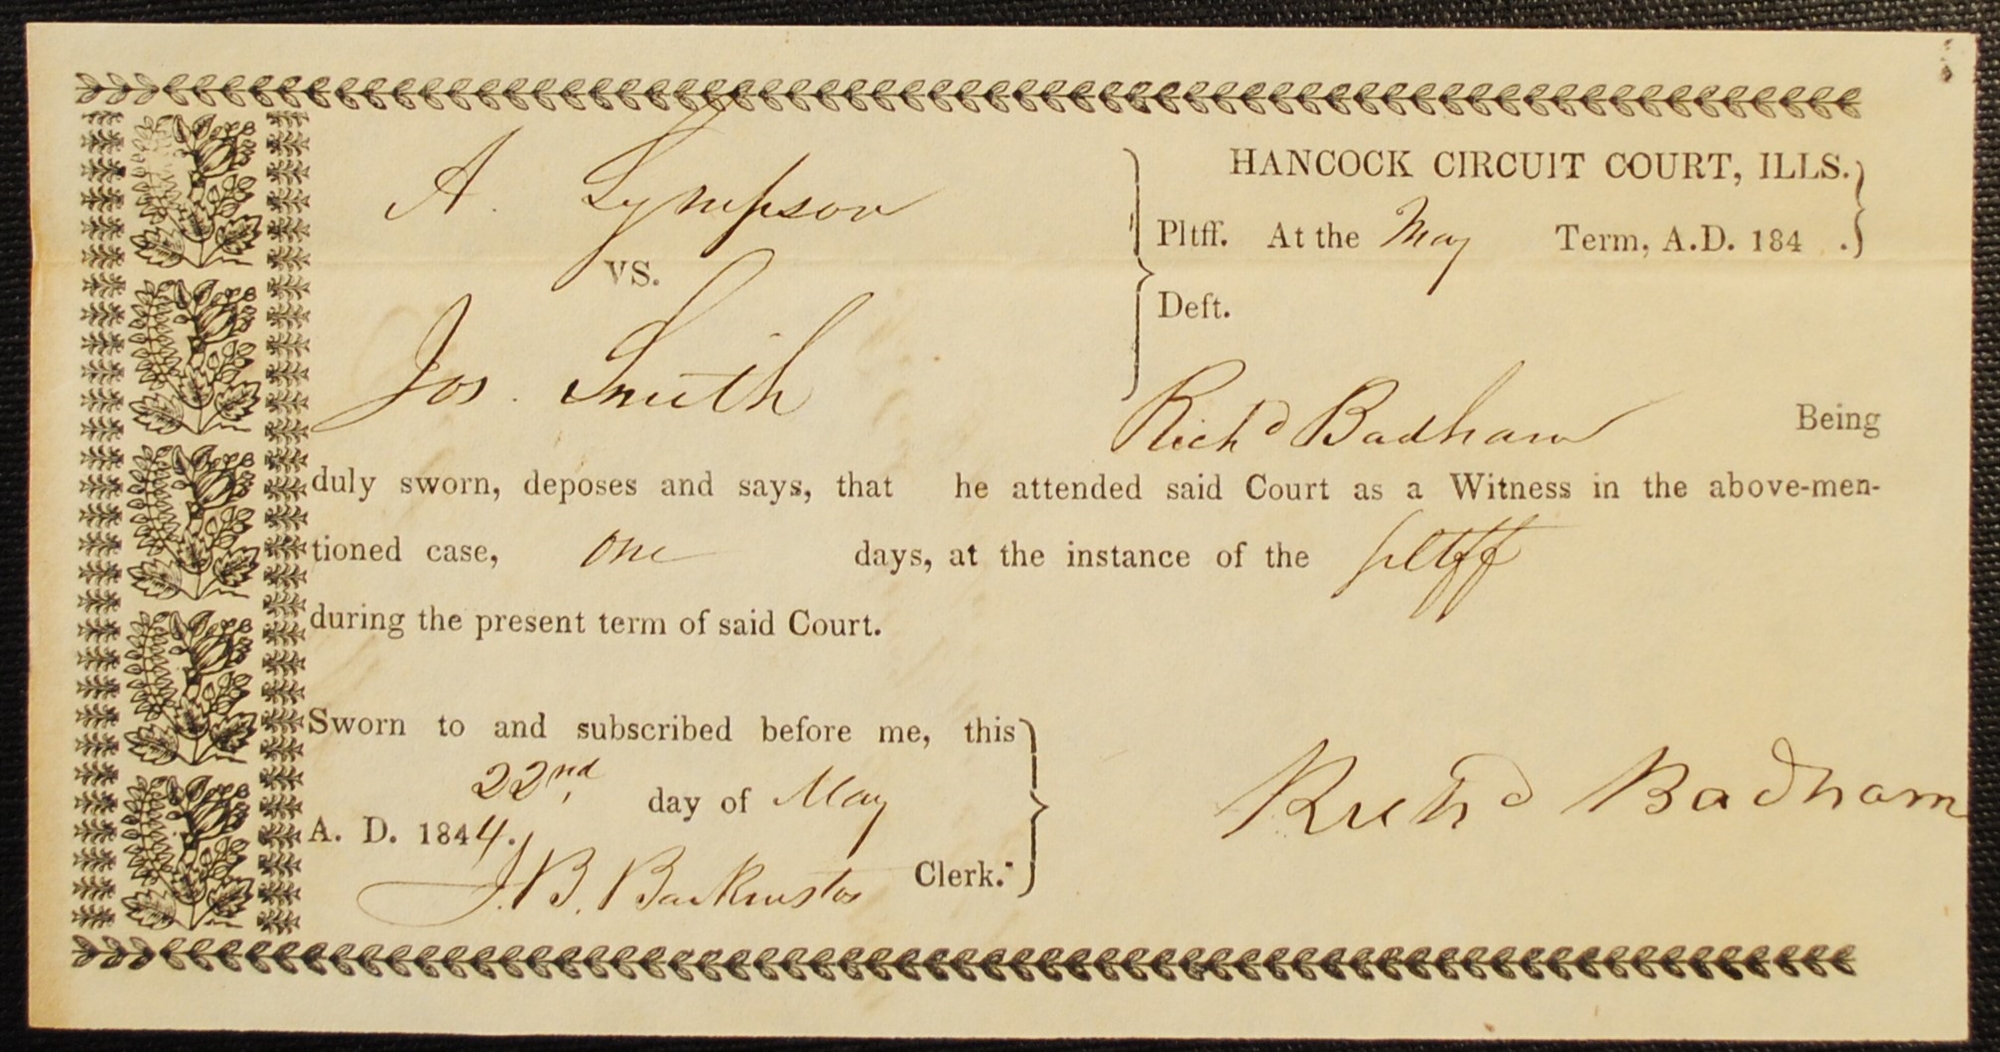 HANCOCK CIRCUIT COURT, ILLS.
A. Sympson
Pltff. At the May Term, A.D. 184 .
VS.
Deft.
Jos. Smith
Richd Badham Being
duly sworn, deposes and says, that he attended said Court as a Witness in the above-men-
tioned case, one days, at the instance of the pltff
during the present term of said Court.
Sworn to and subscribed before me, this
22nd day of May
A. D. 1844.
J. B. Backenstos Clerk.
Richd Badham